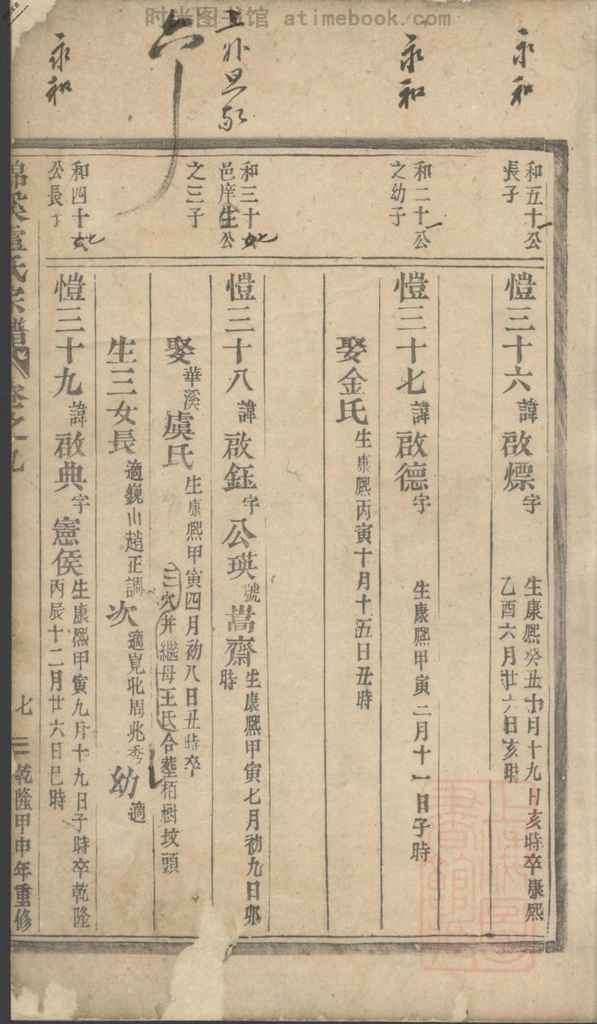 时光图书馆 atimebook.com
永和
永和
六
永和
和五十一公
長子
愷三十六諱啟熛字
生康熙癸丑十月十九日亥時卒康熙
乙酉六月廿六日亥時
和二十一公
之幼子
愷三十七諱啟德字
生康熙甲寅二月十一日子時
娶金氏生康熙丙寅十月十五日丑時
和三十七公
邑庠生公
之三子
愷三十八諱啟鈺字公瑛號嵩齋
生康熙甲寅七月初九日卯
時
娶華溪虞氏
生康熙甲寅四月初八日丑時卒
三穴并繼母王氏合塟栢樹墳頭
生三女長適巍山趙正調次適覓北周兆秀幼適
和四十七公
公長子
愷三十九諱啟典字憲侯
生康熙甲寅九月十九日子時卒乾隆
丙辰十二月廿六日巳時
氏宗譜
卷之九
七
乾隆甲申年重修